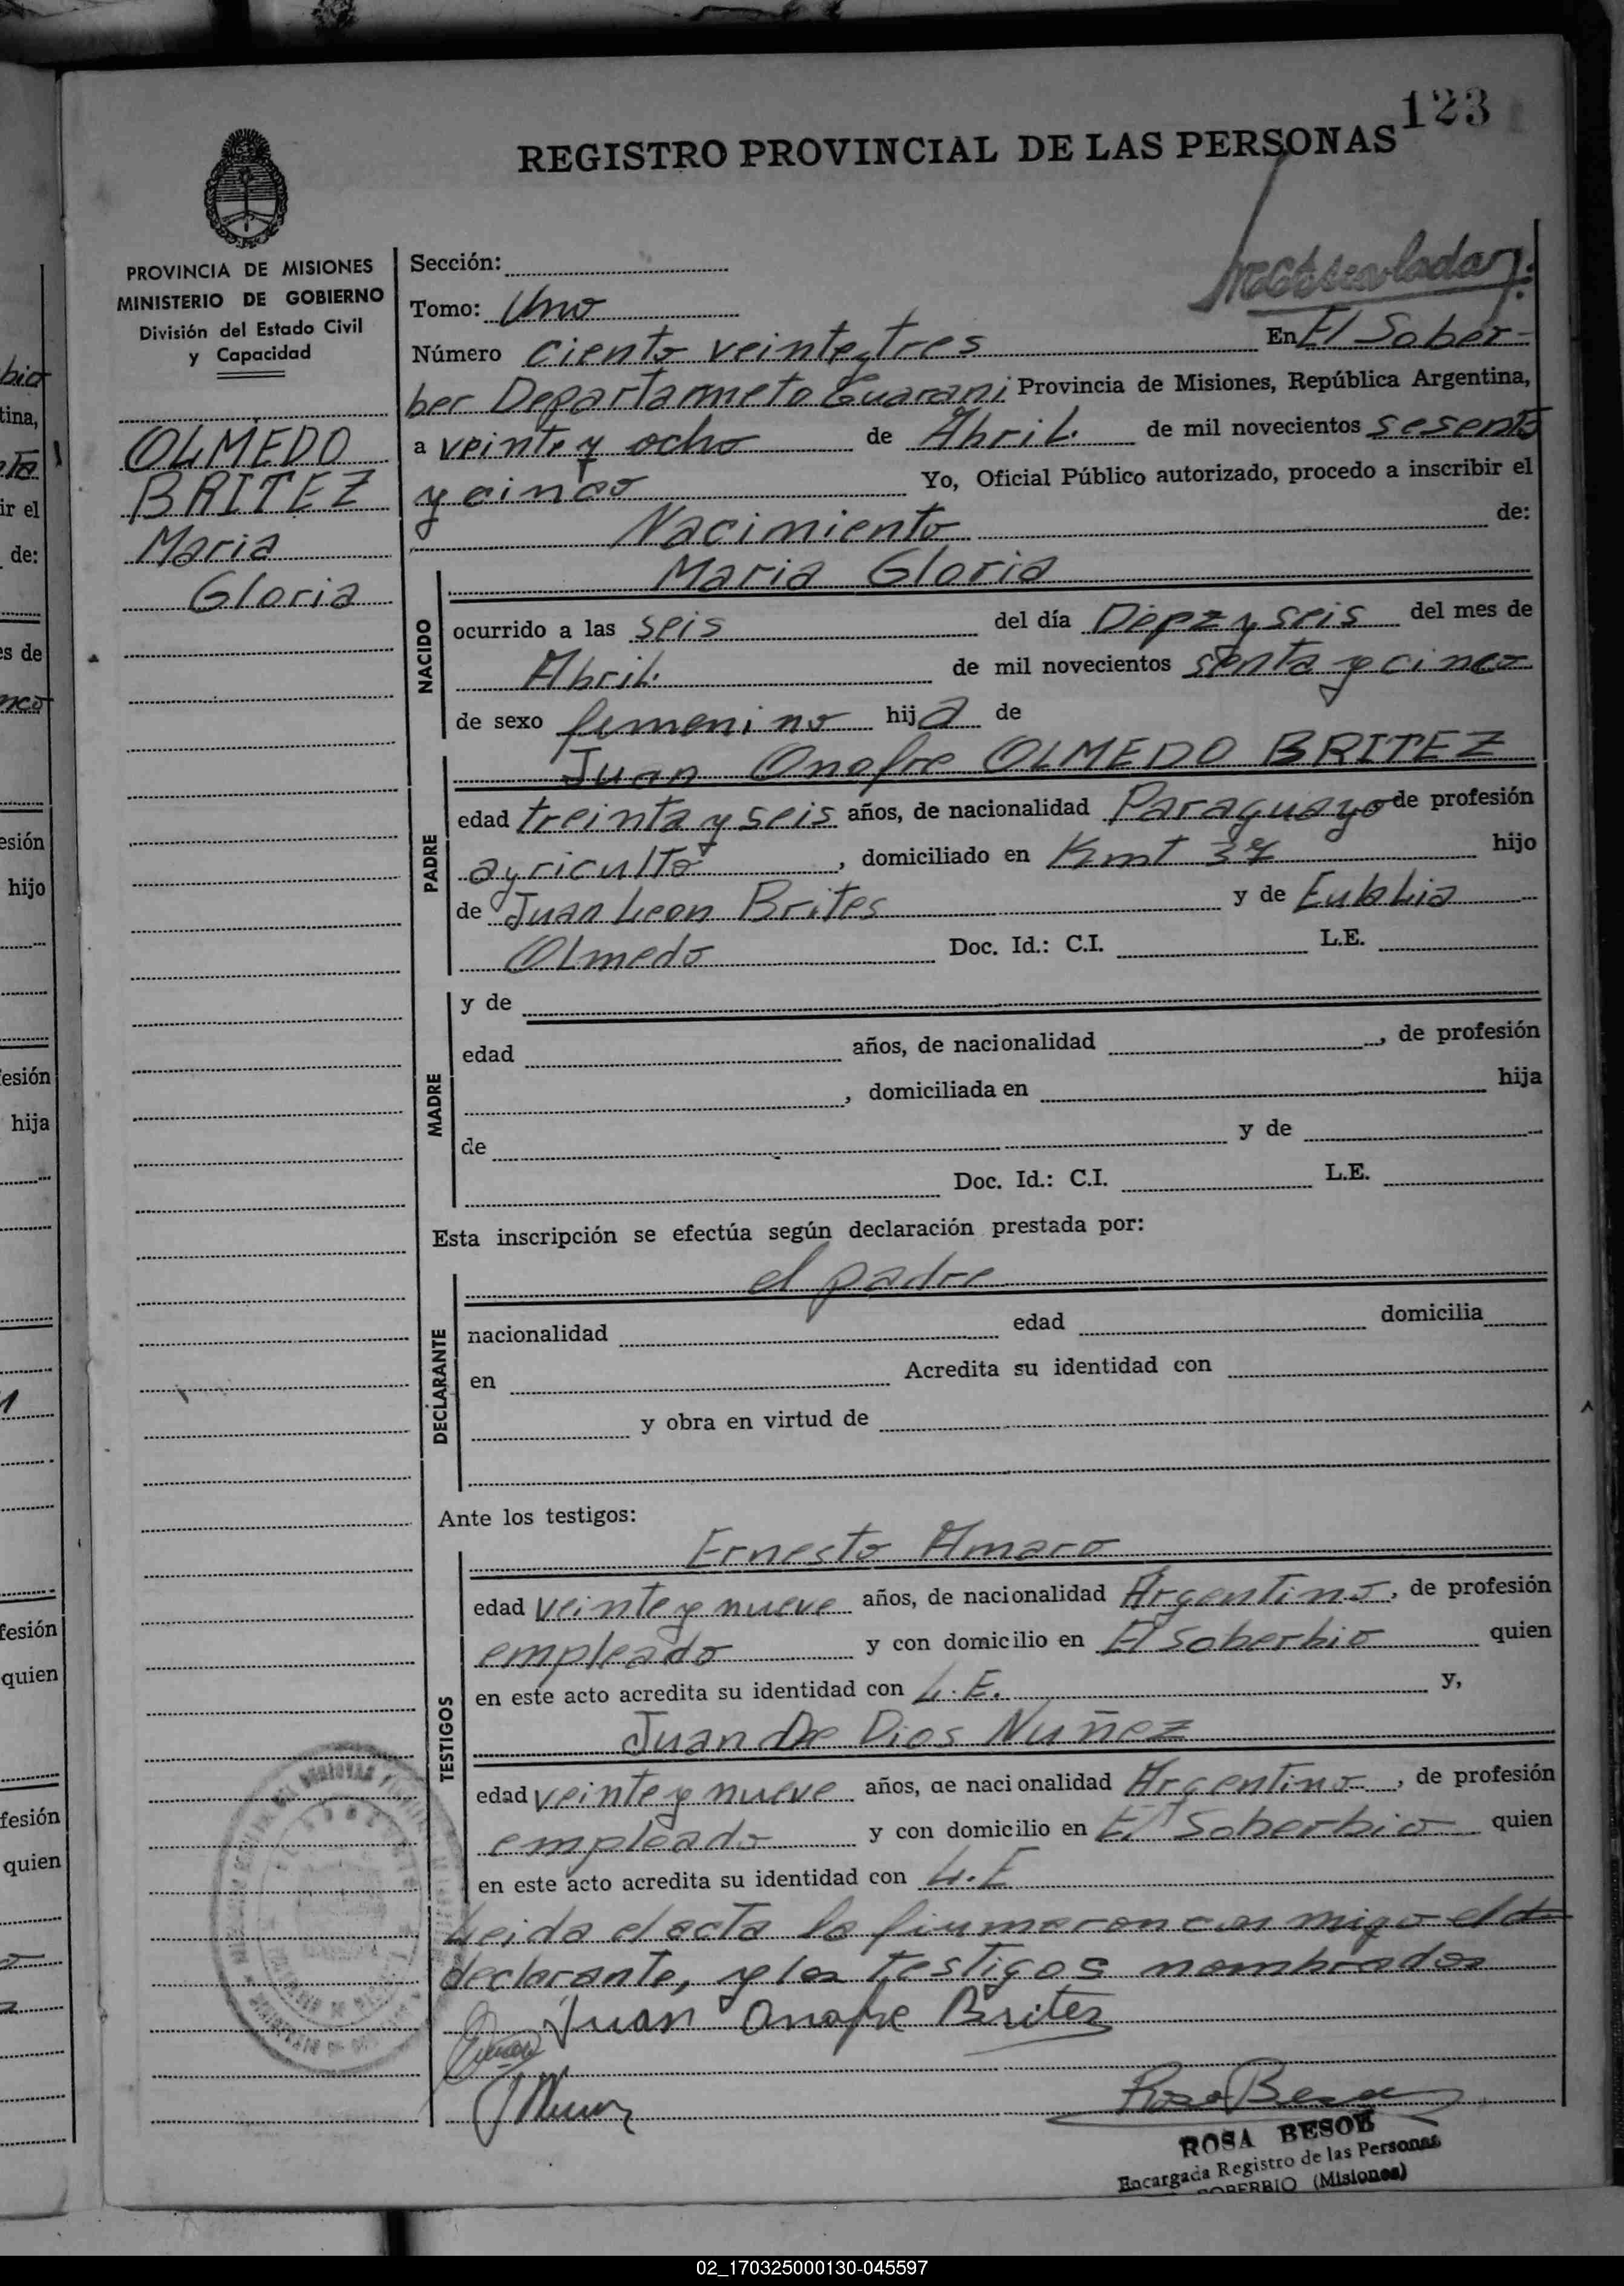 123
REGISTRO PROVINCIAL DE LAS PERSONAS
PROVINCIA DE MISIONES
MINISTERIO DE GOBIERNO
División del Estado Civil
y Capacidad
OLMEDO
BRITEZ
Maria
Gloria
Sección:
Tomo: Uno
Número ciento veinte y tres En El Sober-
ber Departameto Guarani Provincia de Misiones, República Argentina,
a veinte y ocho de Abril. de mil novecientos sesenta
y cinco Yo, Oficial Público autorizado, procedo a inscribir el
Nacimiento de:
NACIDO
Maria Gloria
ocurrido a las seis del día Diez y seis del mes de
Abril. de mil novecientos senta y cinco
de sexo femenino hija de
PADRE
Juan Onofre OLMEDO BRITEZ
edad treinta y seis años, de nacionalidad Paraguayo de profesión
agriculto, domiciliado en Kmt hijo
de Juan Leon Brites y de Eublia
Olmedo Doc. Id.: C.I. L.E.
MADRE
y de
edad años, de nacionalidad , de profesión
, domiciliada en hija
de y de
Doc. Id.: C.I. L.E.
Esta inscripción se efectúa según declaración prestada por:
DECLARANTE
el padre
nacionalidad edad domicilia
en Acredita su identidad con
y obra en virtud de
Ante los testigos:
TESTIGOS
Ernesto Amaro
edad veinte y nueve años, de nacionalidad Argentino, de profesión
empleado y con domicilio en El Soberbio quien
en este acto acredita su identidad con L.E. y,
Juan De Dios Nuñez
edad veinte y nueve años, de nacionalidad Argentino, de profesión
empleado y con domicilio en El Soberbio quien
en este acto acredita su identidad con L.E
Leida el acta la firmaron con migo el
declarante, y los testigos nombrados
Juan Onofre Britez
Rosa Besoe
ROSA BESOE
Encargada Registro de las Personas
SOBERBIO (Misiones)
02_170325000130-045597